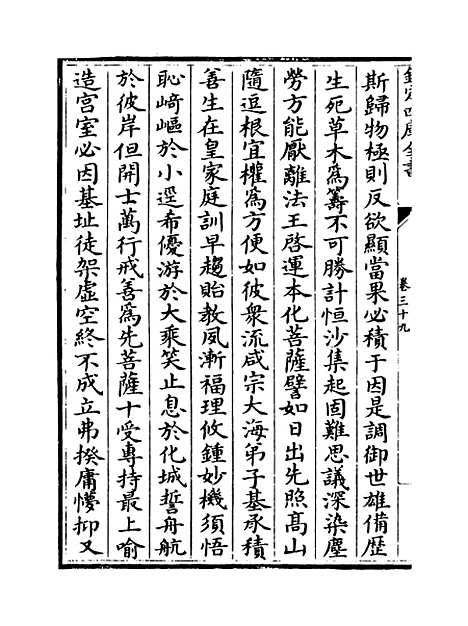 欽定四庫全書
卷三十九
斯歸物極則反欲顯當果必積于因是調御世雄備歴
生死草木爲籌不可勝計恒沙集起固難思議深染塵
勞方能厭離法王啓運本化菩薩譬如日出先照髙山
隨逗根宜權爲方便如彼衆流咸宗大海弟子基承積
善生在皇家庭訓早趨貽教夙漸福理攸鍾妙機須悟
恥崎嶇於小逕希優游於大乗笑止息於化城誓舟航
於彼岸但開士萬行戒善爲先菩薩十受專持最上喻
造宫室必因基址徒架虚空終不成立弗揆庸懵抑又